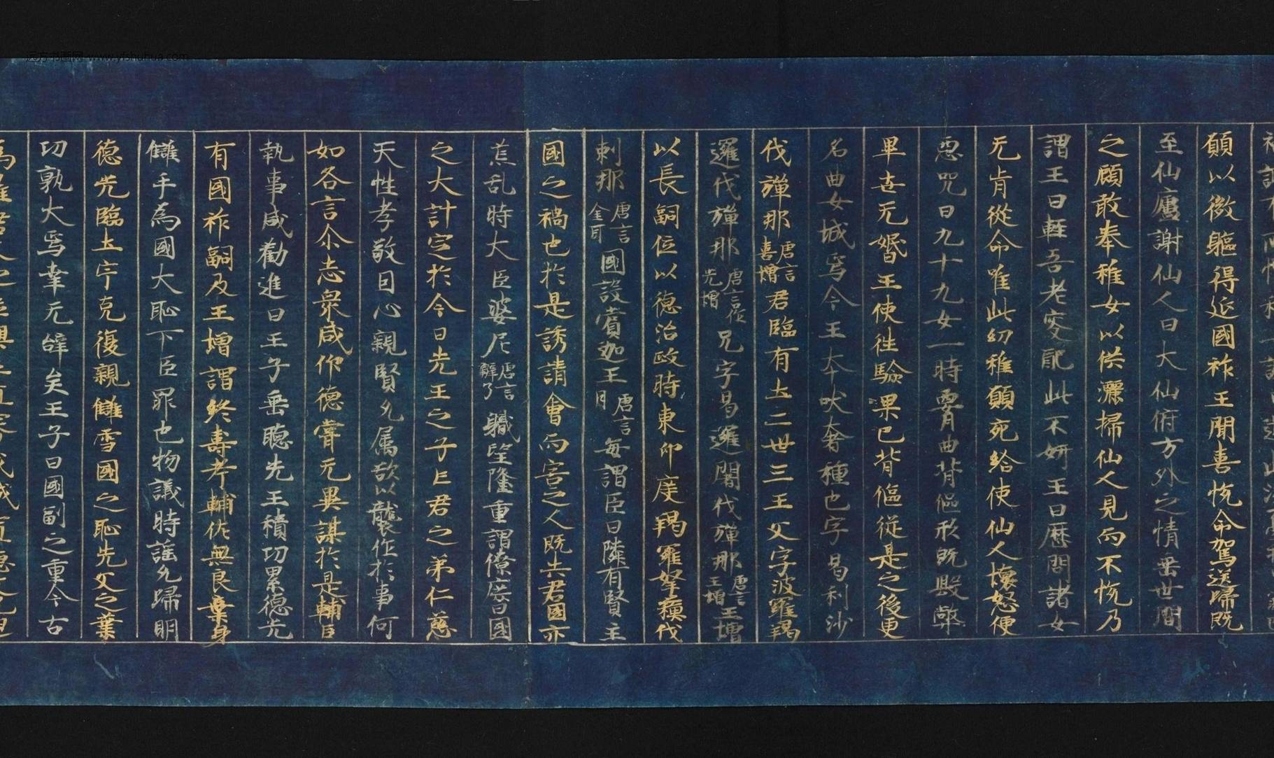 願以微軀得延國祚王聞喜悅命駕送歸既
至仙廬謝仙人曰大仙俯方外之情垂世間
之顧敢奉稚女以供灑掃仙人見而不悅乃
謂王曰輕吾老叟配此不妍王曰歷問諸女
无肯從命唯此幼稚願死給使仙人懷怒便
惡咒曰九十九女一時霄曲背傴形既毀弊
畢世无婚王使往驗果已背傴從是之後更
名曲女城焉今王本吠奢種也字曷利沙
伐彈那唐言喜增君臨有土二世三王父字波羅羯
邏伐彈那唐言作光增兄字曷邏闍伐彈那唐言王增王增
以長嗣位以德治政時東印度羯羅拏蘇伐
剌那唐言金耳國設賞迦王唐言月每謂臣曰隣有賢主
國之禍也於是誘請會而害之人既失君國亦
荒乱時大臣婆尼唐言辯了職望隆重謂僚庶曰國
之大計定於今日先王之子亡君之弟仁慈
天性孝敬因心親賢允属欲以襲位於事何
如各言尒志衆咸仰德甞无異謀於是輔臣
執事咸勸進曰王子垂聽先王積功累德光
有國祚嗣及王增謂終壽考輔佐無良棄身
讎手為國大恥下臣罪也物議時謠允歸明
德光臨土宇克復親讎雪國之恥光父之業
功孰大焉幸无辭矣王子曰國嗣之重今古